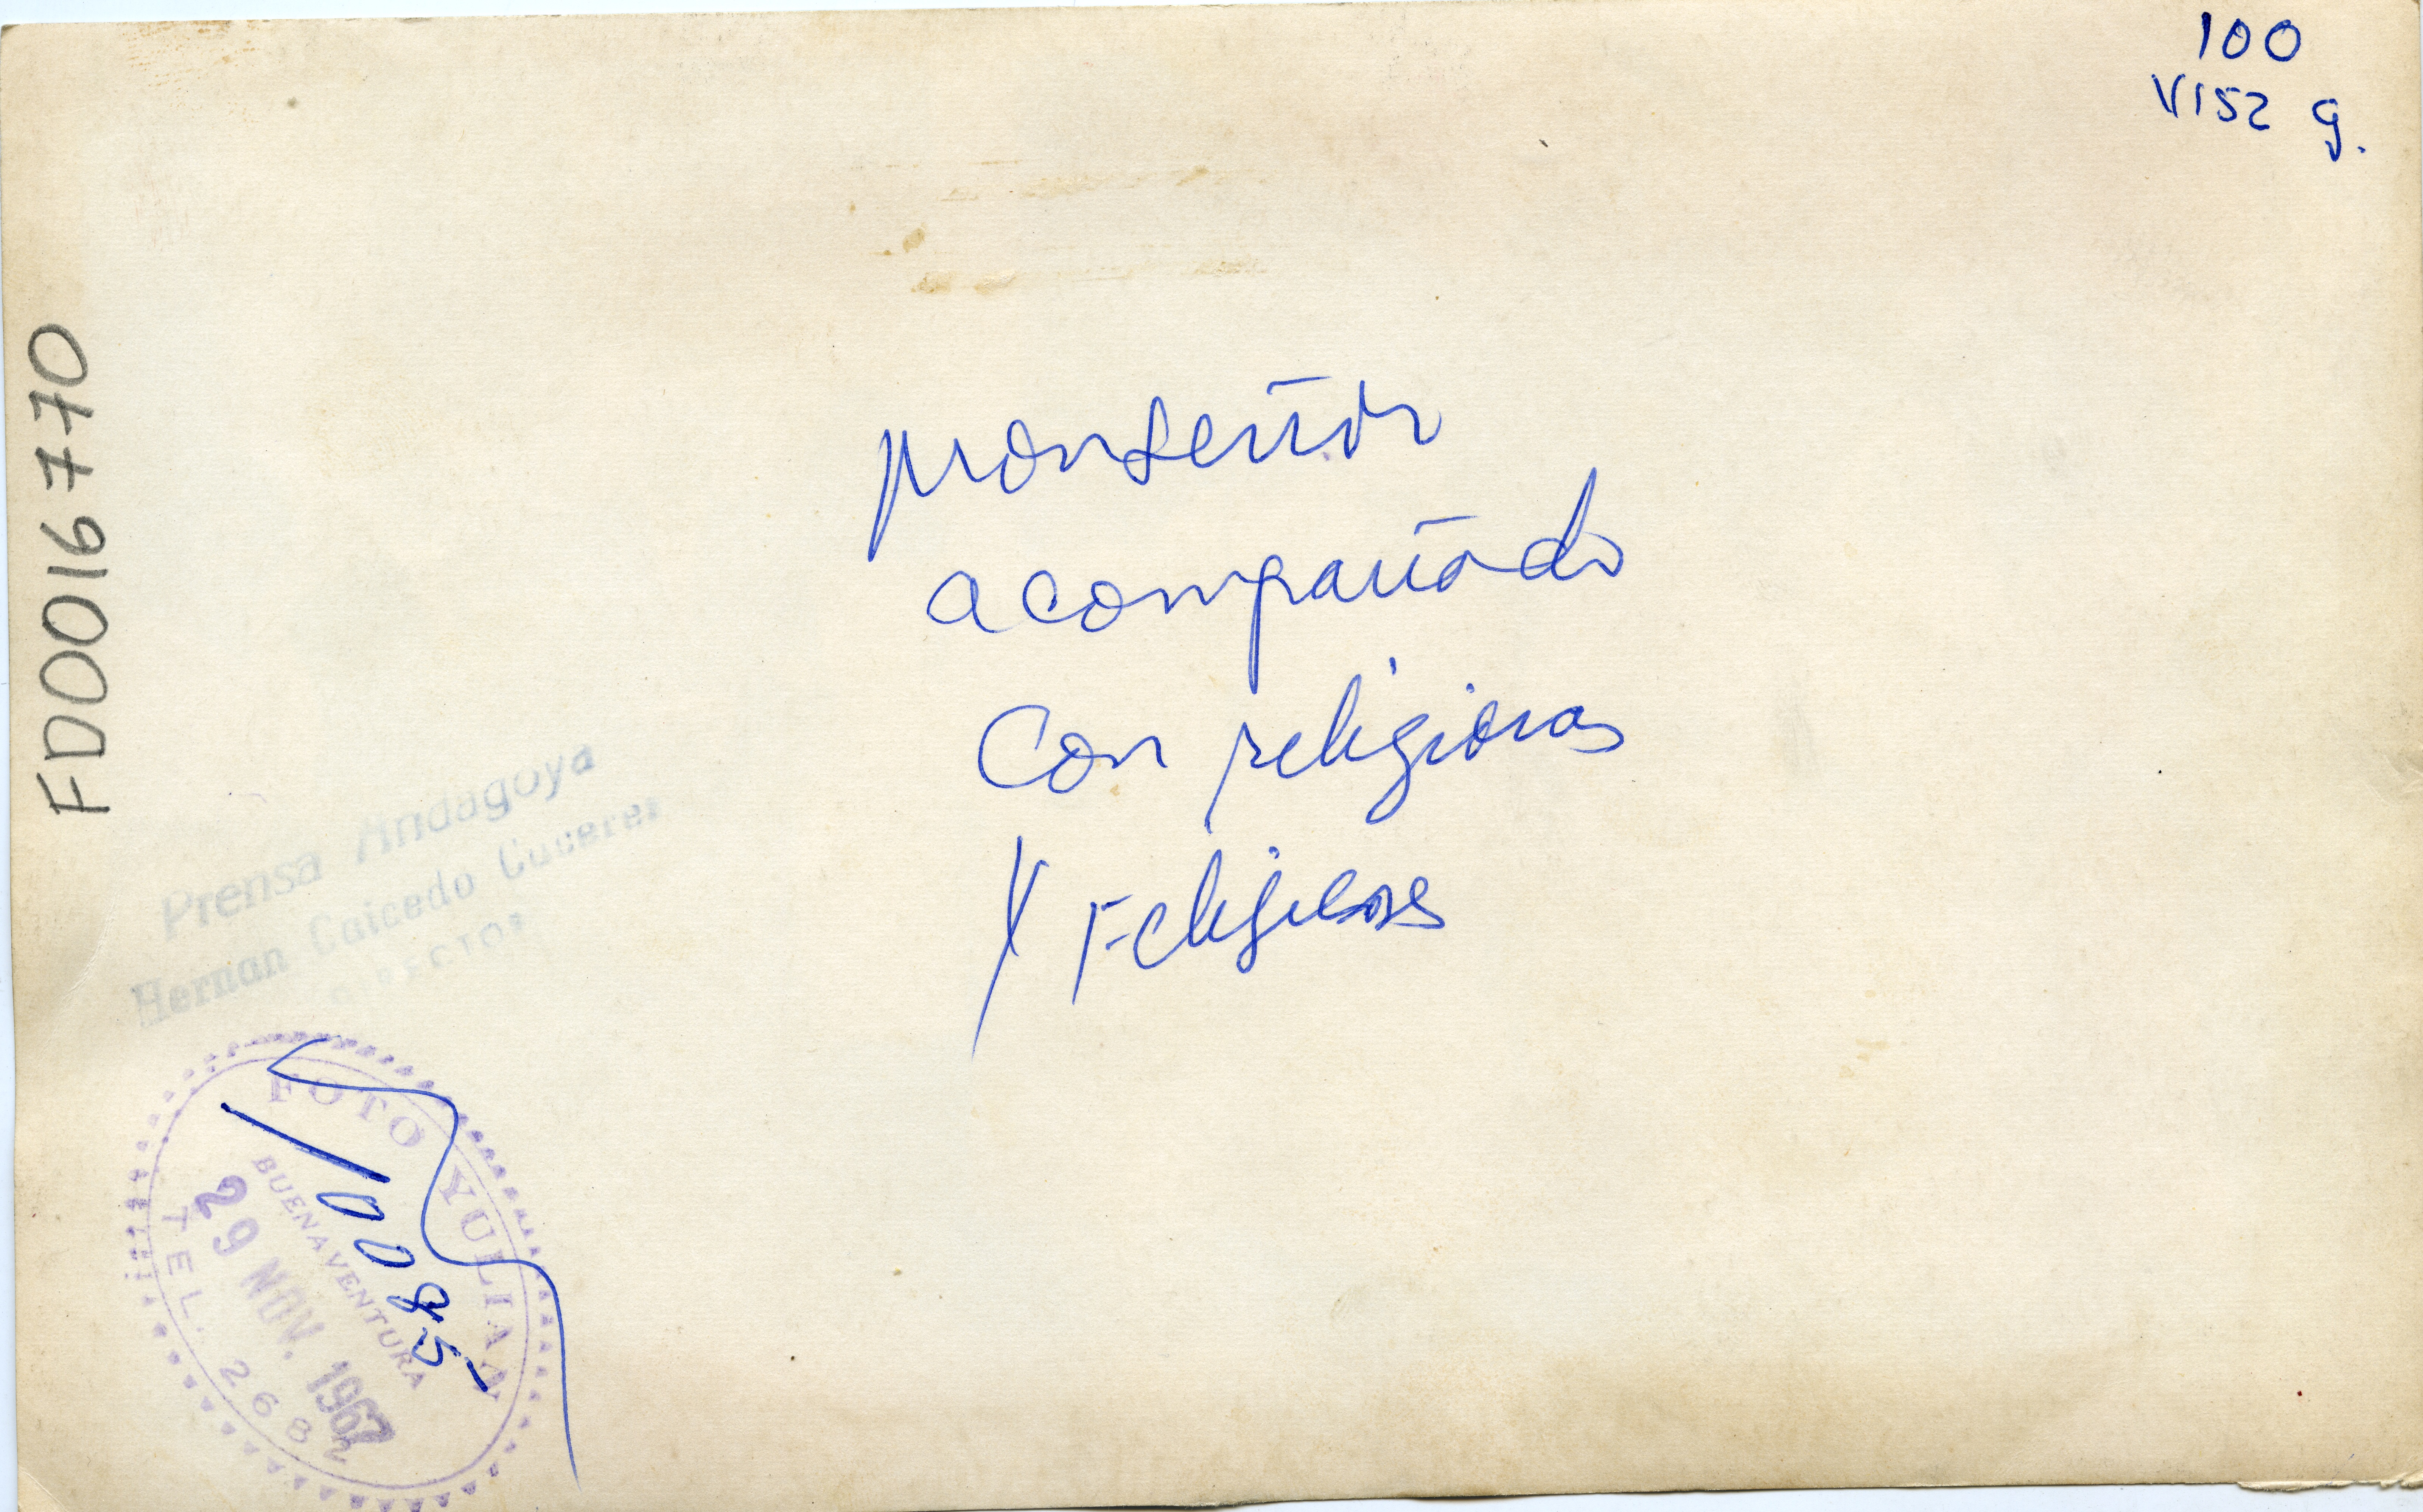 100
V152 g.
FD0016770
Monseñor
acompañado
con religiosas
y religiosos
Prensa Andagoya
Hernan Caicedo
FOTO YULIAN
BUENAVENTURA
29 NOV. 1967
TEL. 268
10085